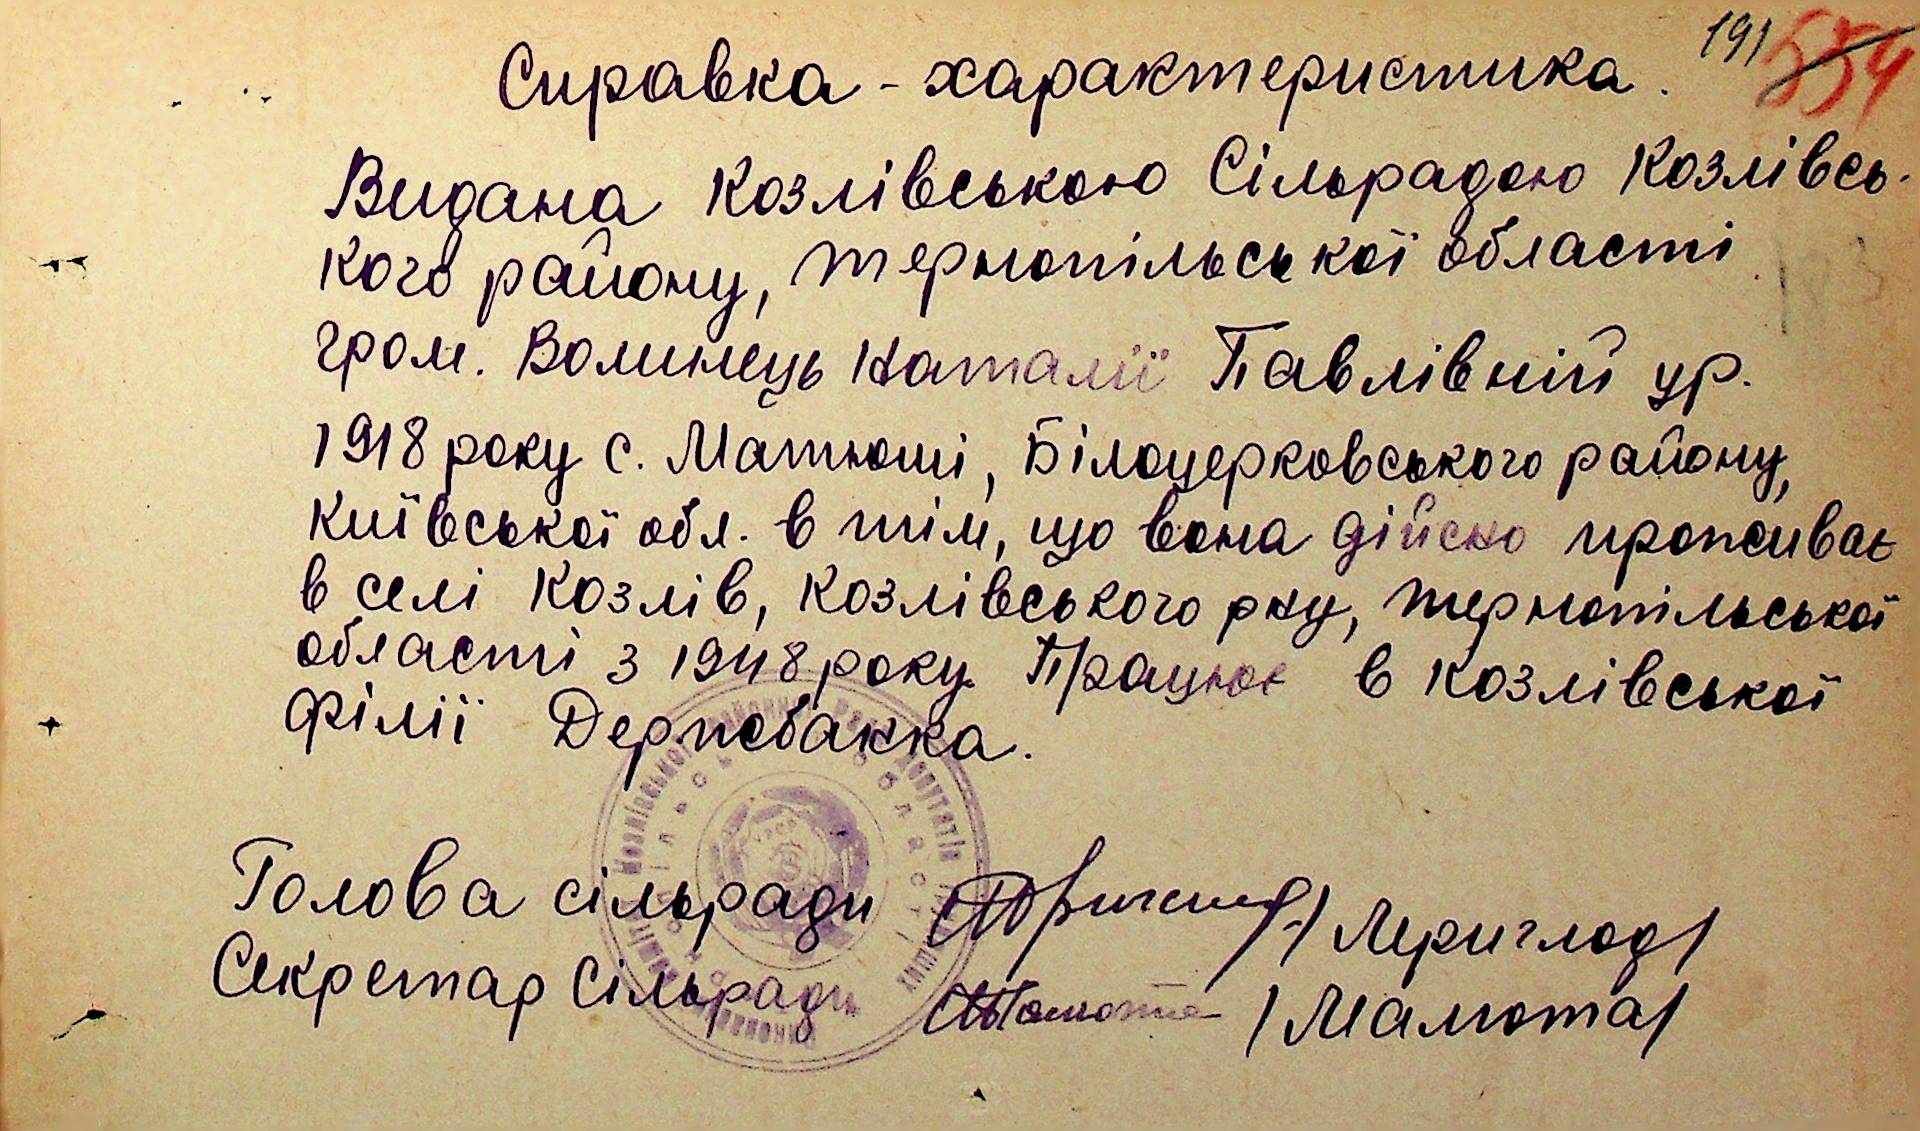 191 554
Справка - характеристика.
Видана Козлівською Сільрадою Козлівсь-
кого району, Тернопільської області
гром. Волинець Наталії Павлівній ур.
1918 року с. Матюші, Білоцерковського району,
Київської обл. в тім, що вона дійсно проживає
в селі Козлів, Козлівського рну, Тернопільської
області з 1948 року. Працює в Козлівській
філії Держбанка.
Голова сільради /Периглод/
Секретар Сільради /Мамота/